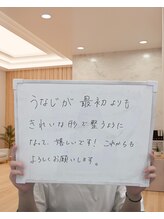 うなじが最初よりも
きれいな形で整うように
なって、嬉しいです！これからも
よろしくお願いします。